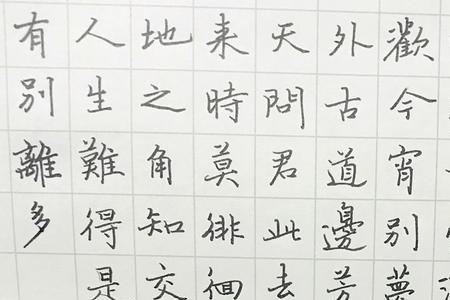 歡今宵別夢
外古道邊芳
天問君此去
来時莫徘徊
地之角知交
人生難得是
有別離多